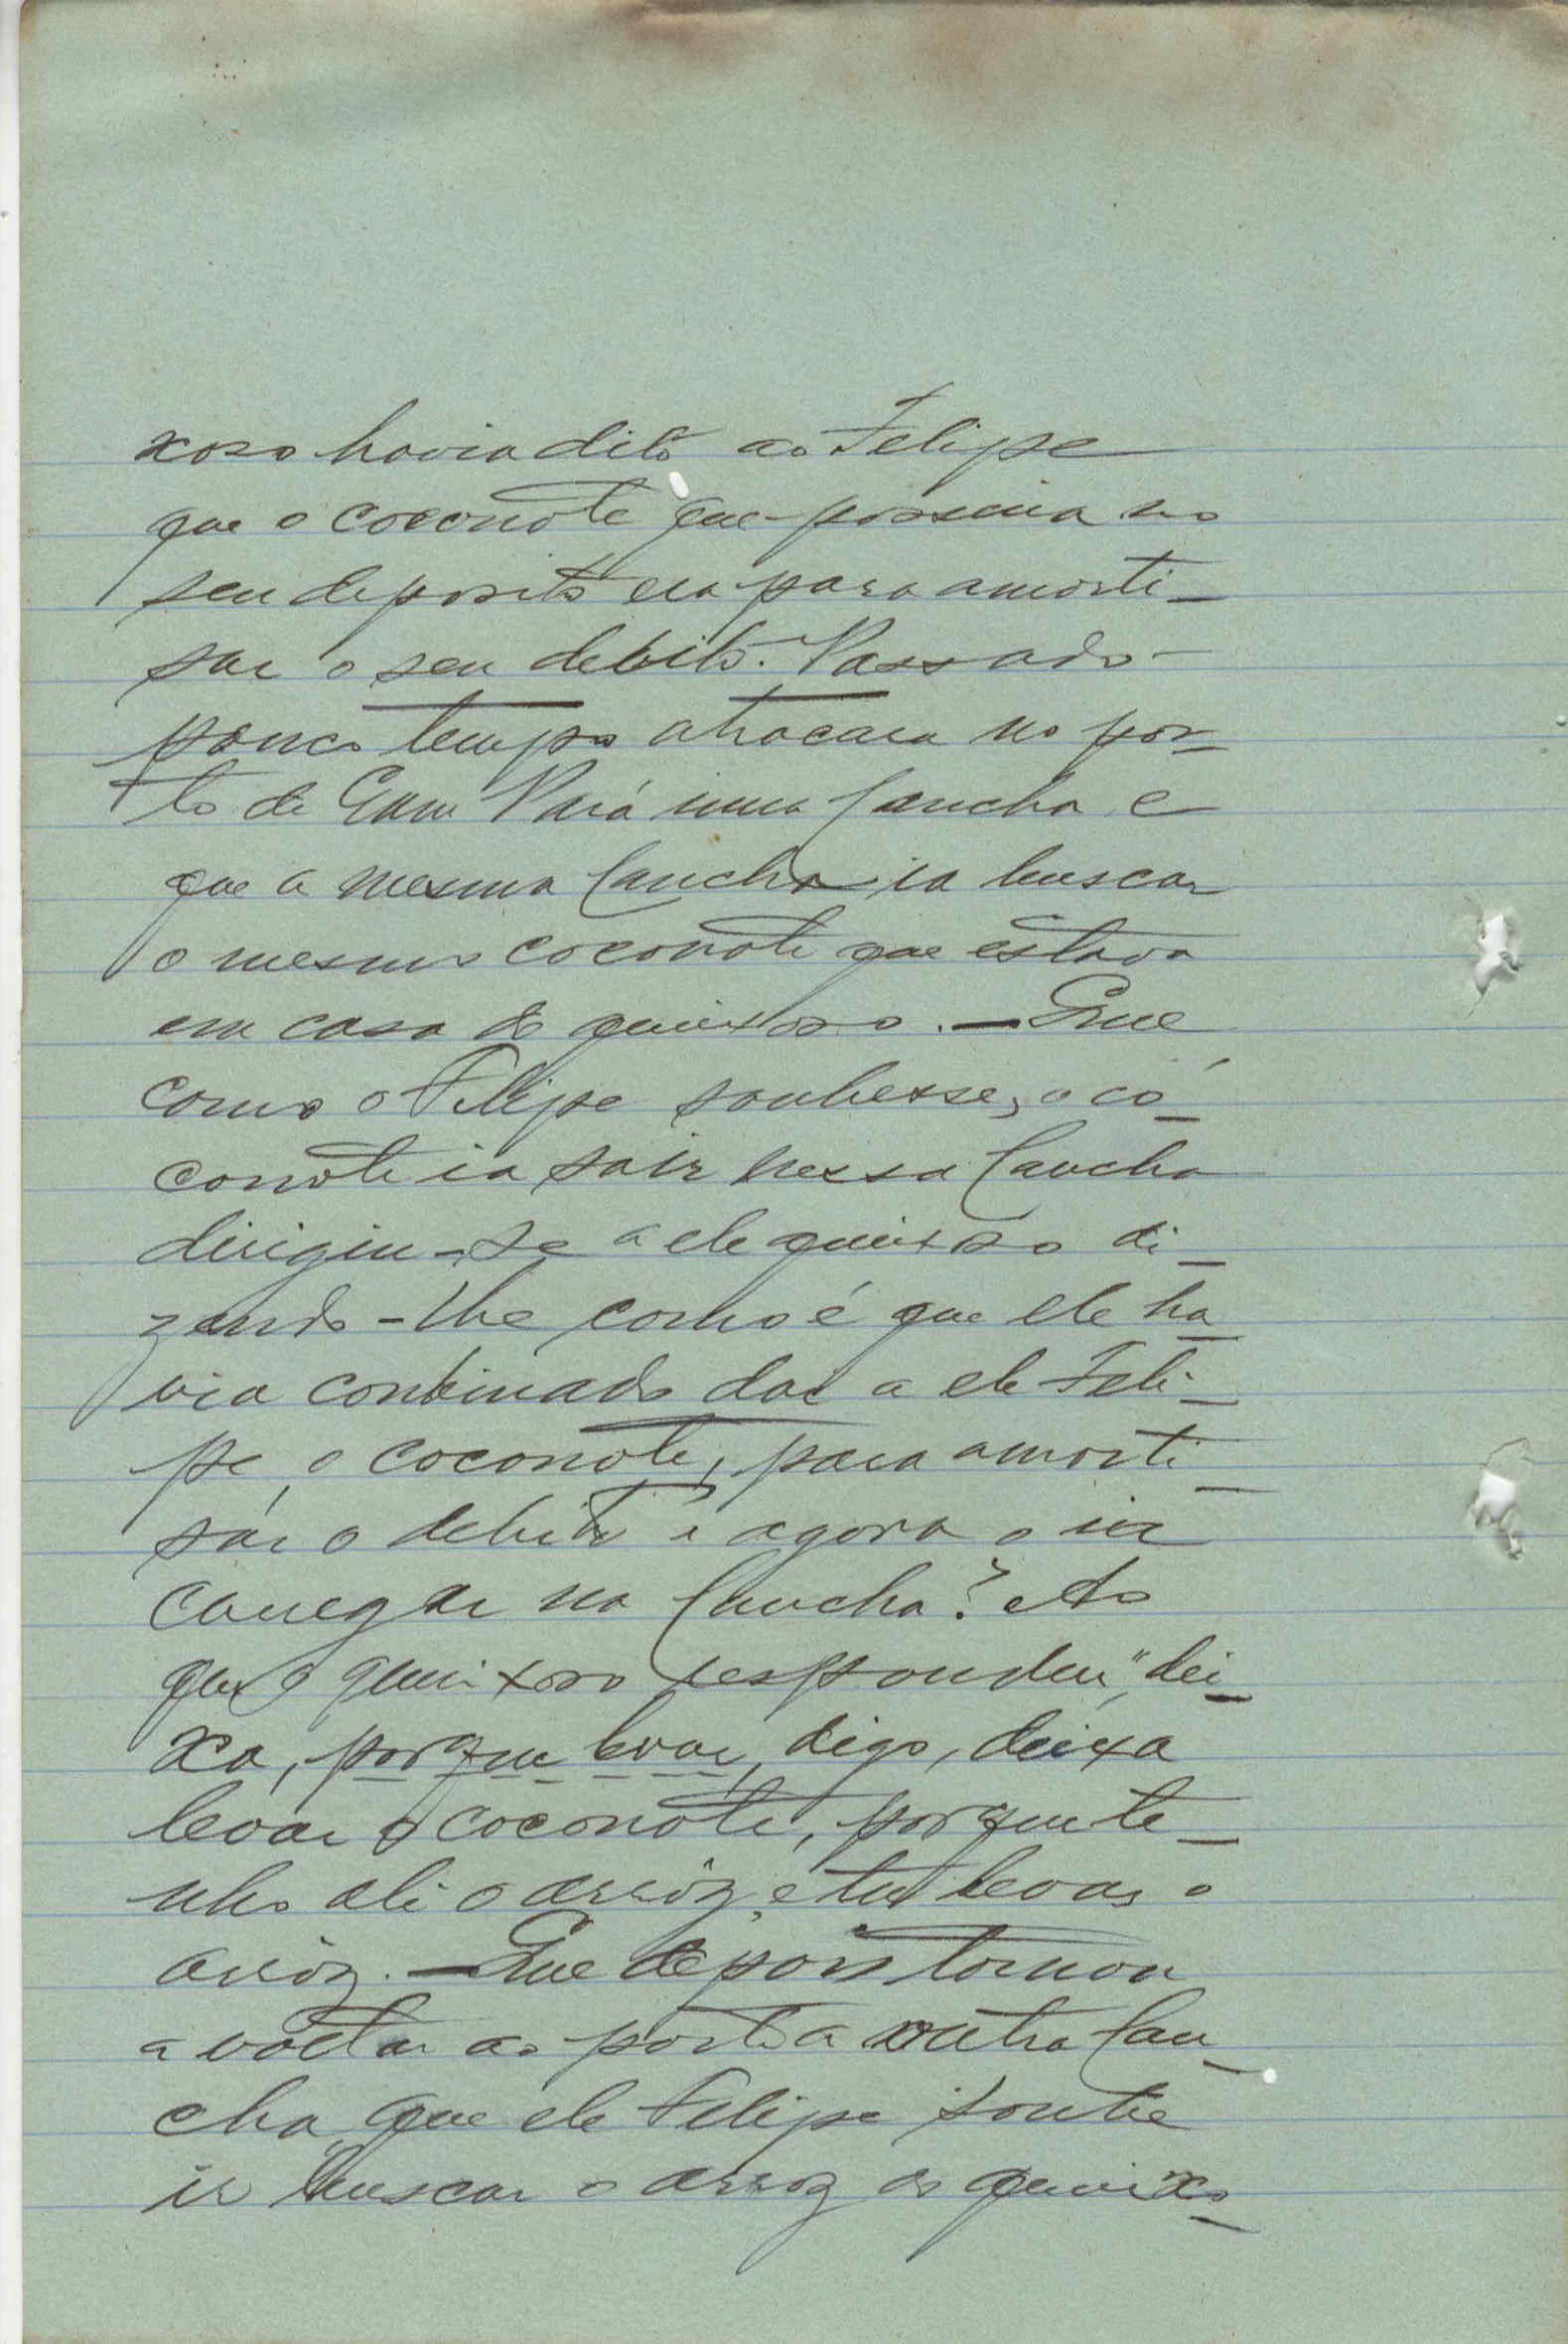 xoso havia dito ao Felipe
que o coconote que possuia no
seu deposito era para amorti-
sar o seu debito. Passado
pouco tempo atracara no por-
to de Pará uma lancha e
que a mesma lancha ia buscar
o mesmo coconote que estava
em casa do queixoso. — Que
como o Felipe soubesse, o có-
conote ia sair nessa lancha
dirigiu-se a ele queixoso di-
zendo-lhe como é que ele ha-
via conbinado dar a ele Feli-
pe, o coconote, para amorti-
sár o debito e agora o ia
carregar na lancha? Ao
que o queixoso respondeu "dei-
xa, porque levar, digo, deixa
levar o coconote, porque te-
nho ali o arrôz e tu levas o
arrôz. — Que depois tornou
a voltar ao porto a outra lan-
cha que ele Felipe soube
ir buscar o arroz do queixo-